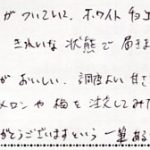 がついていて、ホワイトチョ
きれいな状態で届きま
がおいしい。調度よい甘さ
メロンや梅を注文してみた
がとうございますという一筆ある